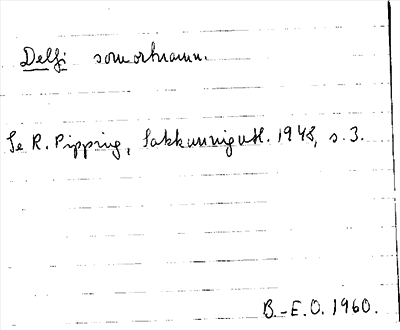 Delfi som ortnamn.
Se R. Pipping, Sakkunnigutl. 1948, s. 3.
B.-E.O. 1960.